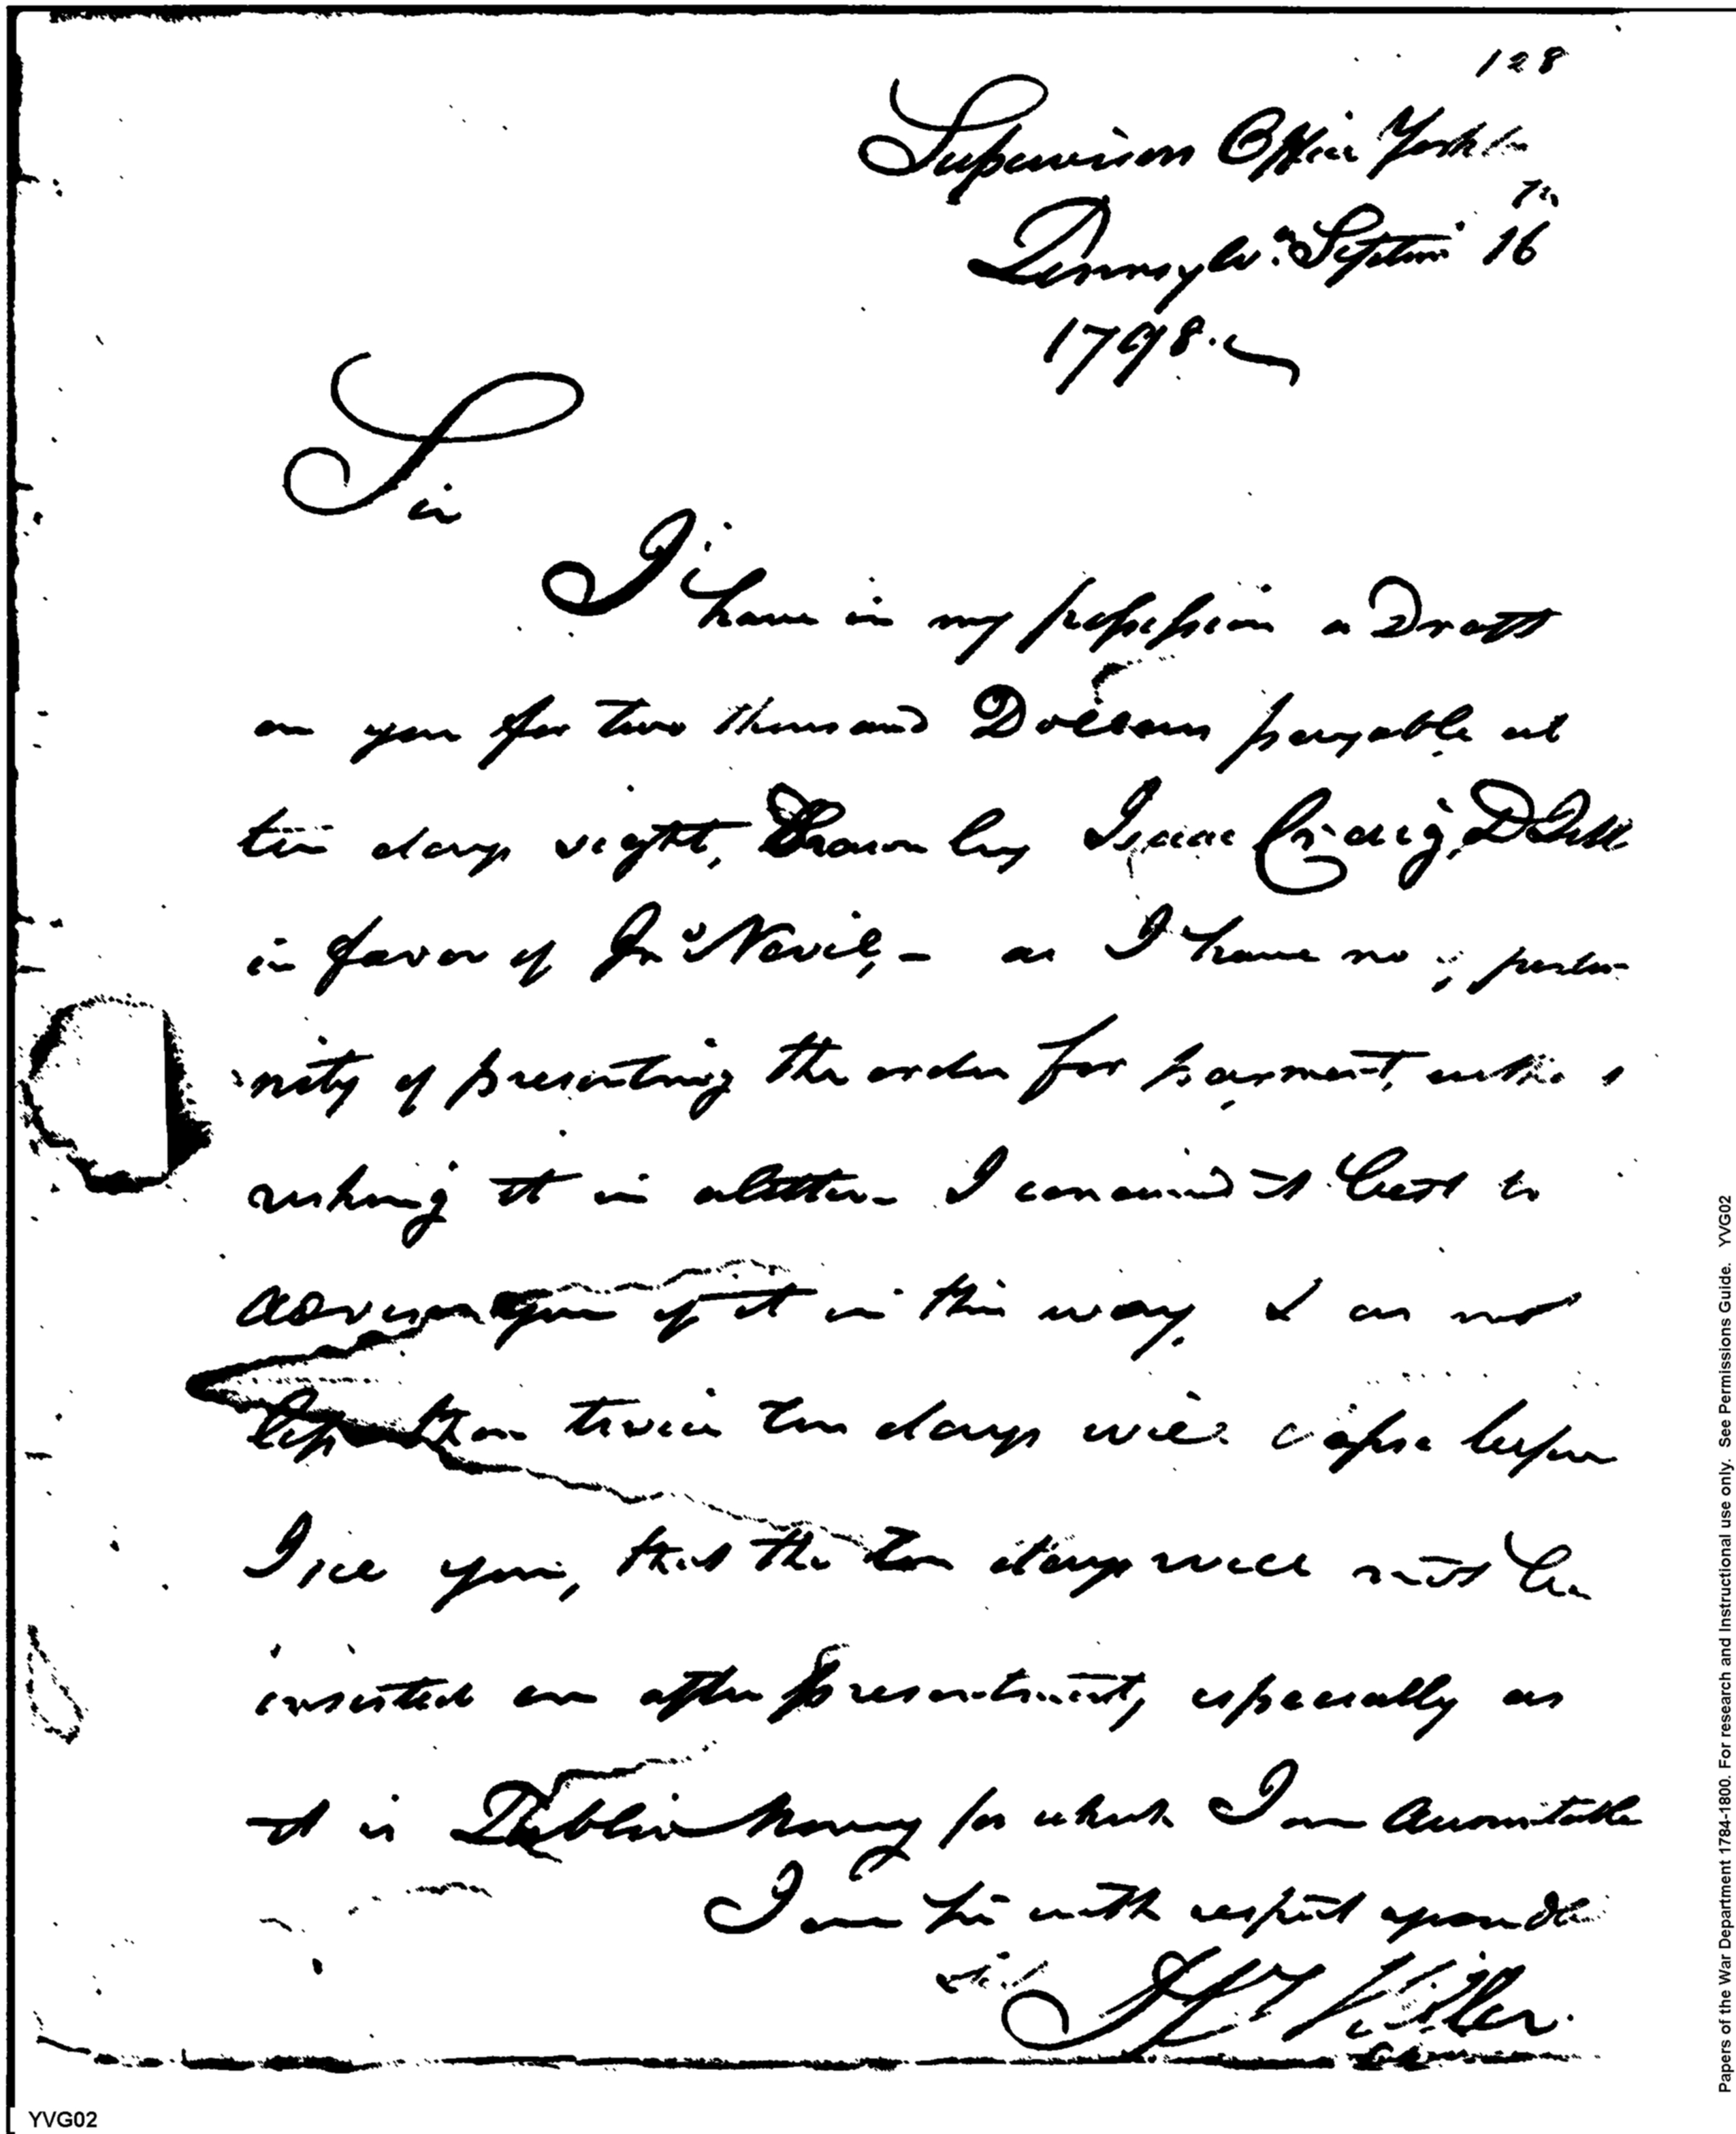 128
Supervisors Office York
Pennsylva. Septem 16th
1798.
Sir
I have in my possession a Draft
on you for two thousand Dollars payable at
ten days sight, Drawn by Isaac Craig, DQM
in favor of Jno Nevil, - as I have no opportu-
nity of presenting the order for payment, without
risking it in a letter - I conceived it best to
advise you of it in this way, & as not
less than twice ten days will elapse before
I see you, that the ten days will not be
insisted on after presentment, especially as
it is Public Money for which I am accountable
I am Sir with respect your Ob
Sert
Miller
YVG02
Papers of the War Department 1784-1800. For research and Instructional use only. See Permissions Guide. YVG02